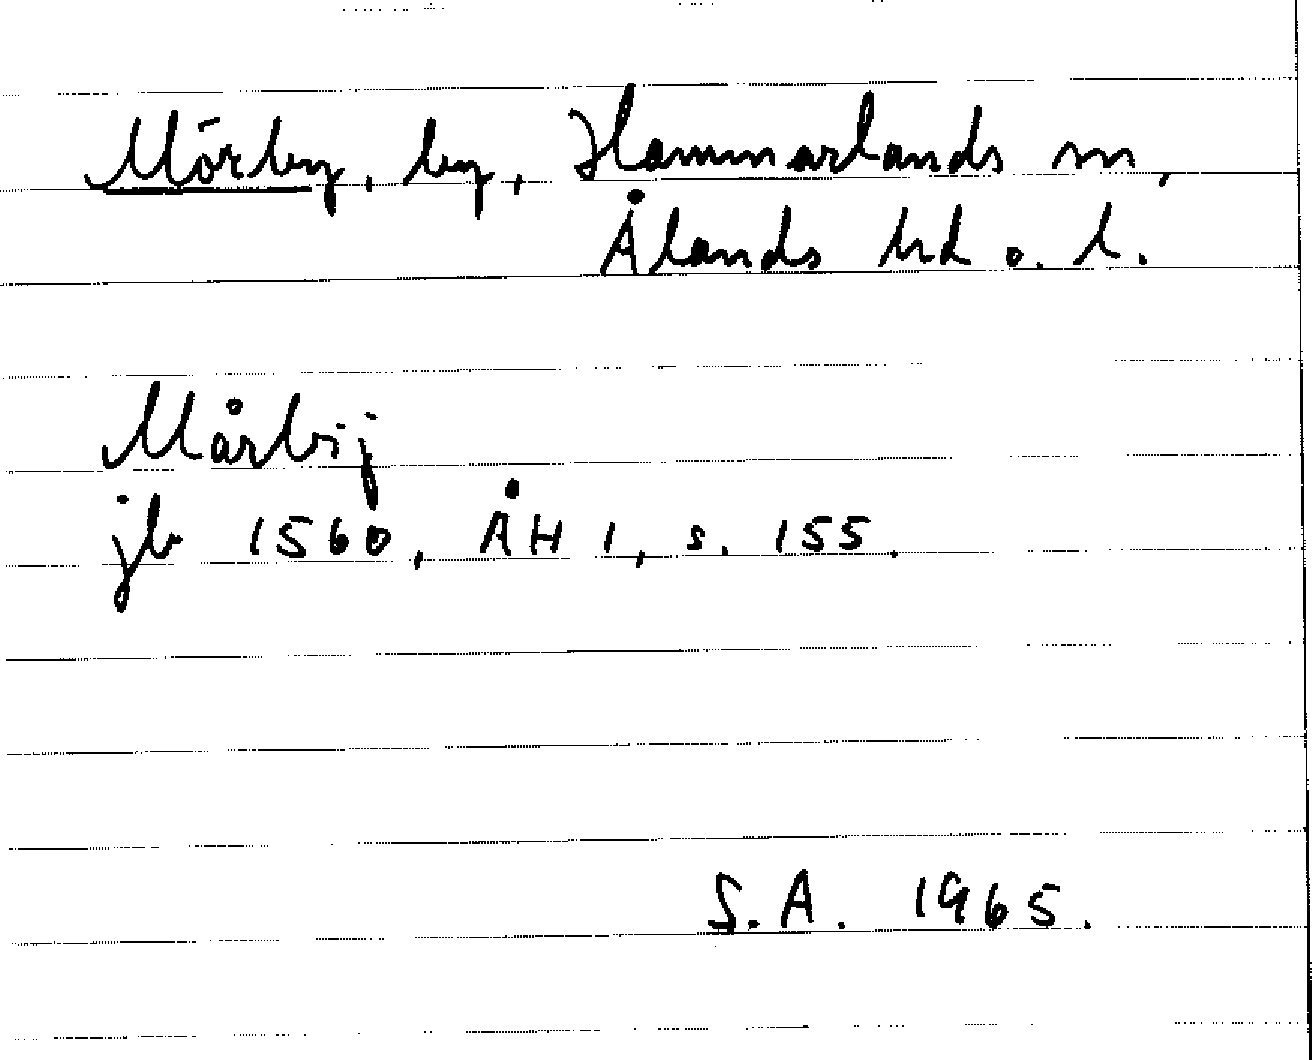 Mörby, by, Hammarlands sn,
Ålands hd o. l.
Mårbij
jb 1560, ÅH 1, s. 155.
S.A. 1965.